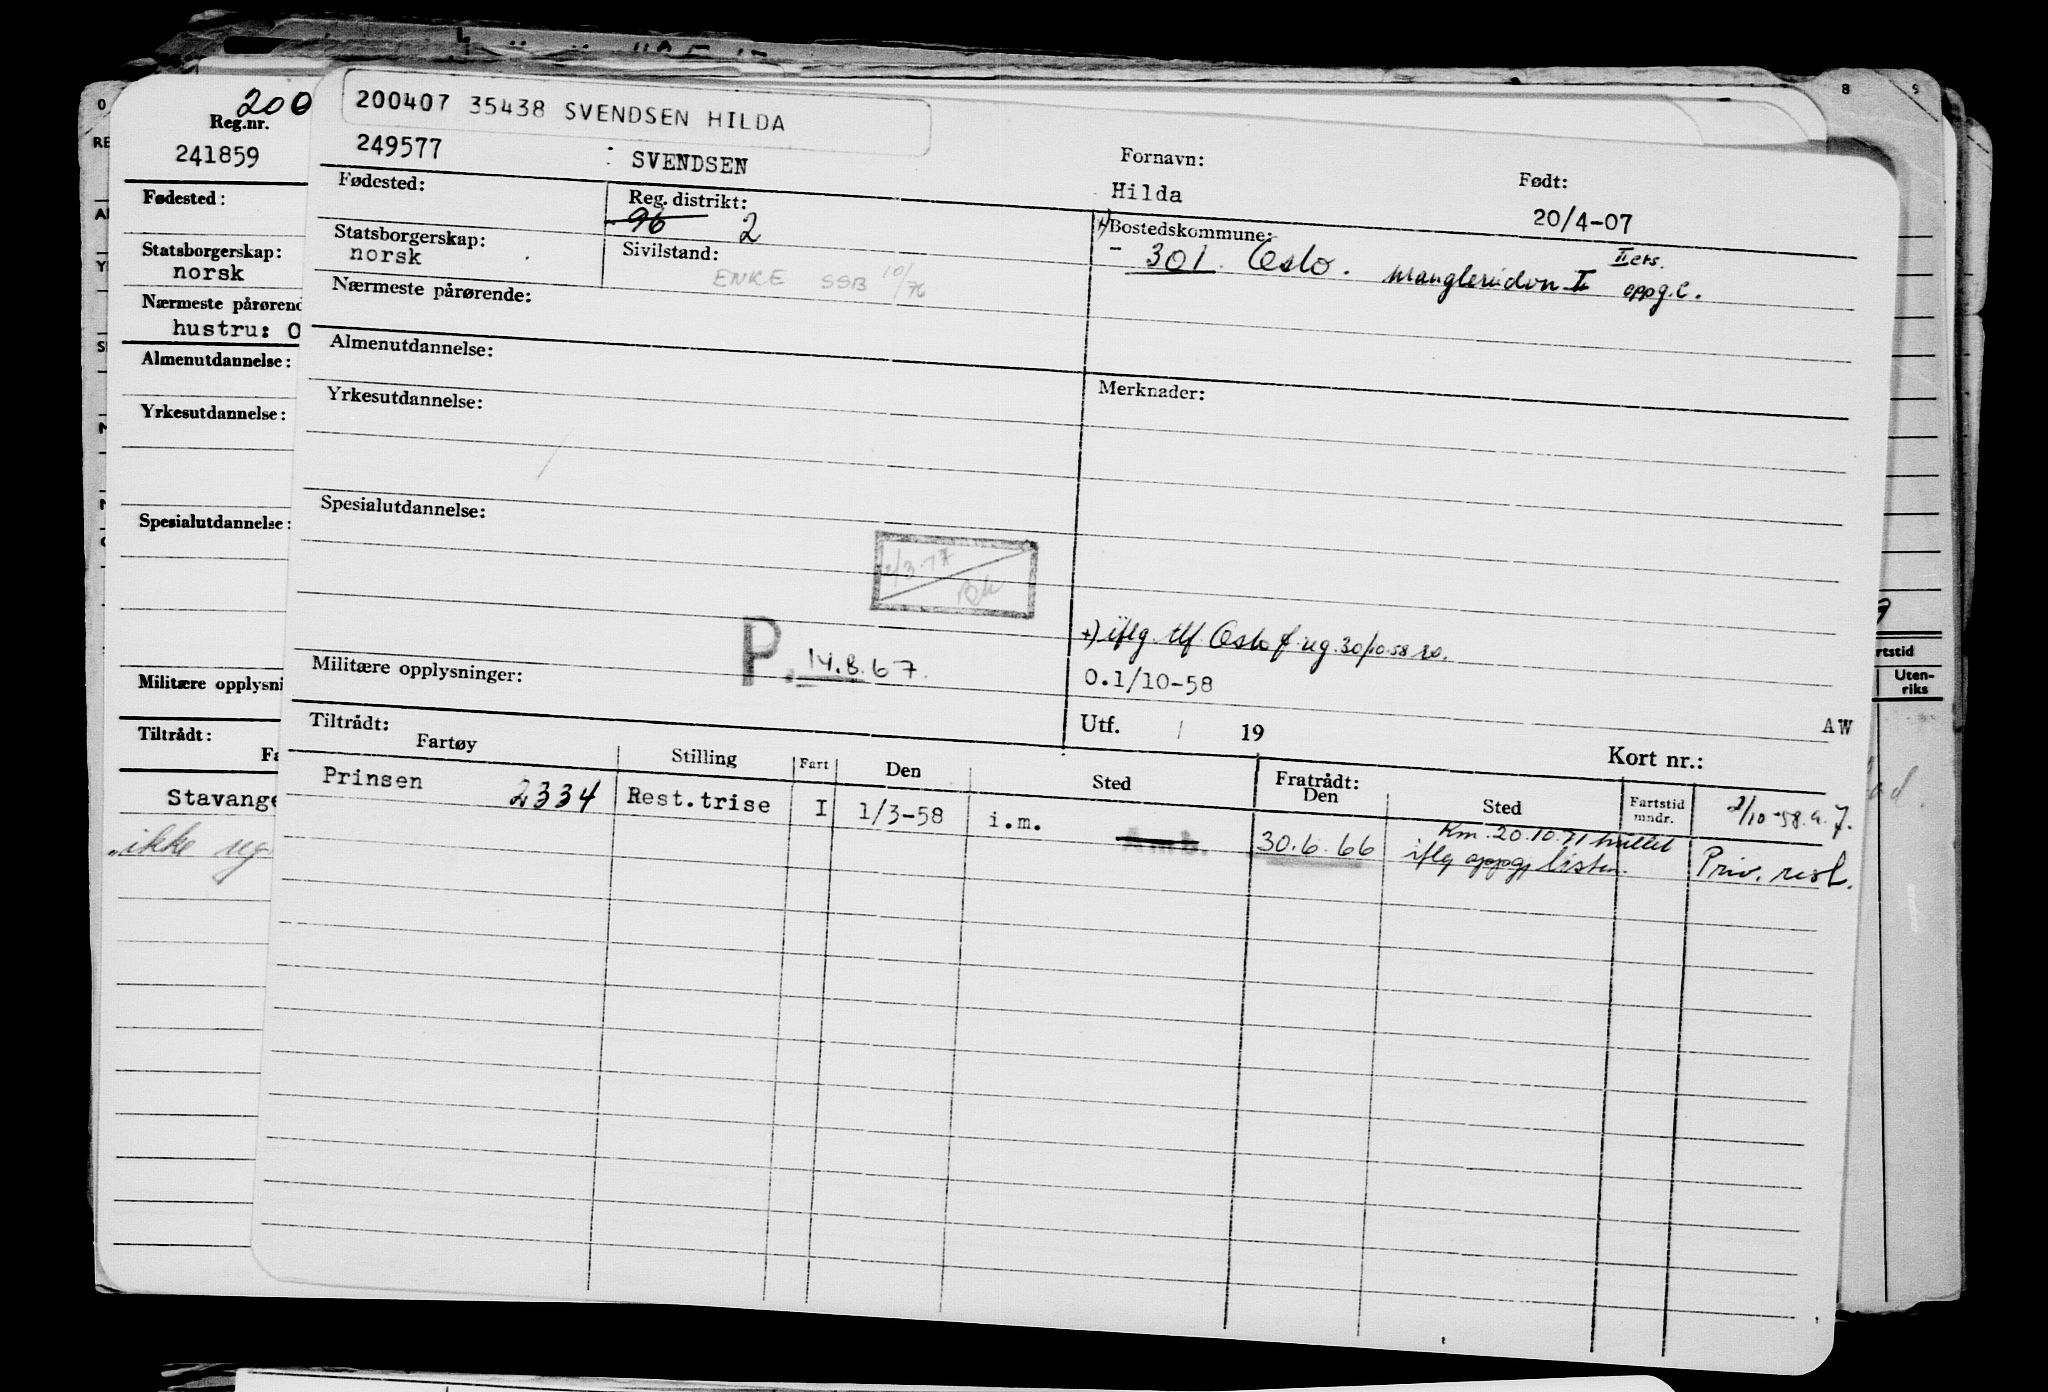 200407 35438 SVENDSEN HILDA
249577
: SVENDSEN
Fornavn:
Hilda
Født:
20/4-07
Fødested:
Reg. distrikt:
96 2
+) Bostedskommune:
- 301. Oslo. II ets. oppg. C.
Statsborgerskap:
norsk
Sivilstand:
ENKE SSB 10/76
Nærmeste pårørende:
Almenutdannelse:
Yrkesutdannelse:
Merknader:
Spesialutdannelse:
+) iflg. tlf. Oslo 30/10-58
O.1/10-58
P. 14.8.67.
Militære opplysninger:
Utf. / 19
AW
Tiltrådt:
Kort nr.:
Fartøy Stilling Fart Den Sted Fratrådt: Den Sted Fartstid mndr.
Prinsen 2334 Rest.trise I 1/3-58 i.m. 30.6.66 Km. 20.10.71
iflg oppg, listen. Priv. rest.
200
Reg.nr.
241859
Fødested:
Statsborgerskap:
norsk
Nærmeste pårørend
hustru: O
Almenutdannelse:
Yrkesutdannelse:
Spesialutdannelse:
Militære opplysni
Tiltrådt:
Fa
Stavange
ikke
8 9
rtstid
Uten-
riks